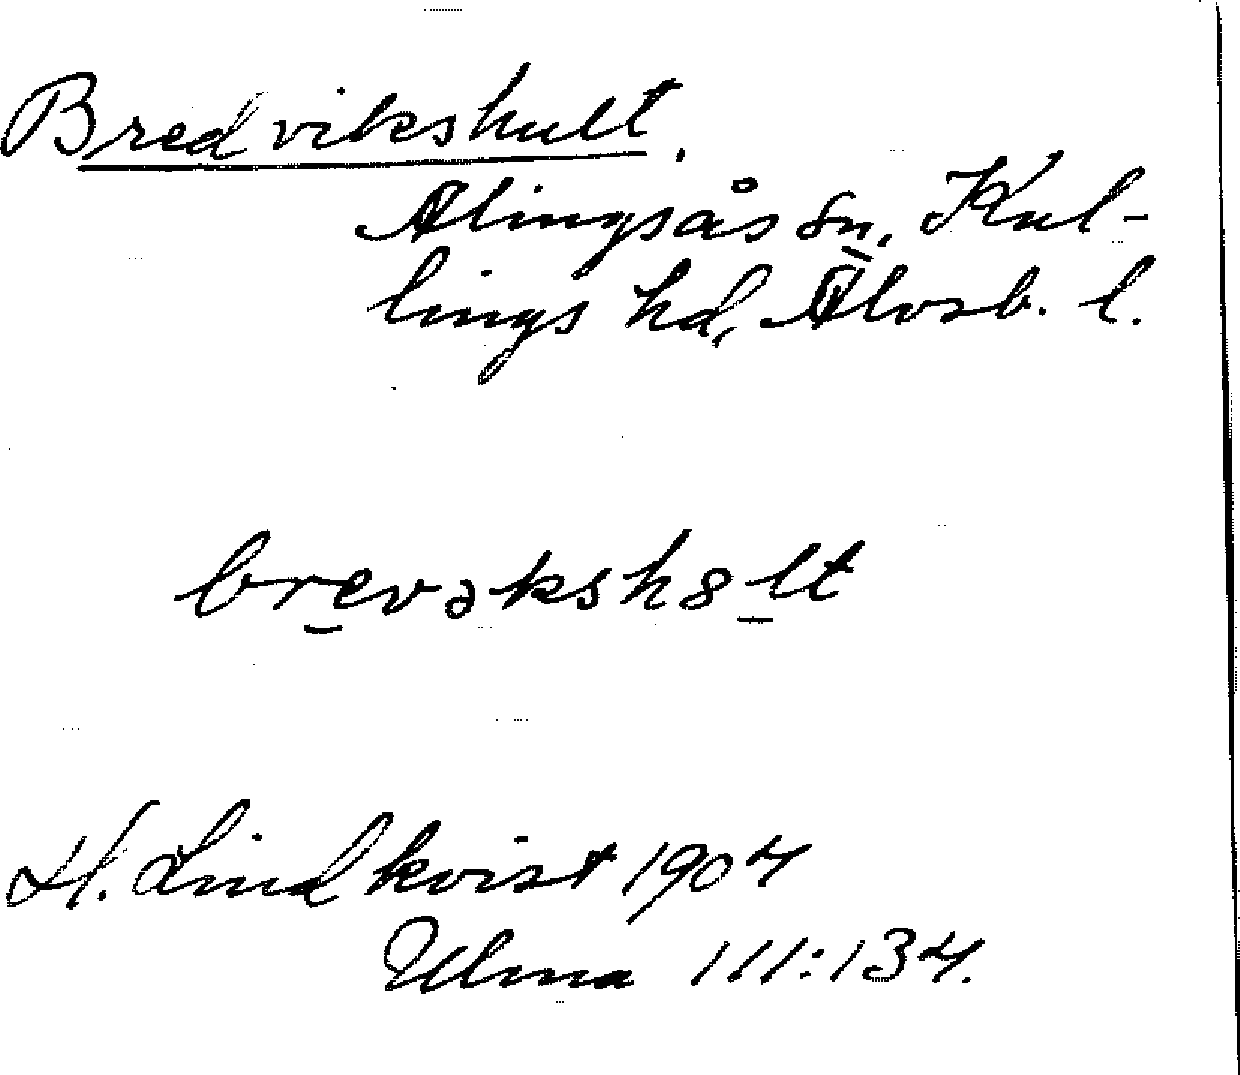 Bredvikshult.
Alingsås sn, Kul-
lings hd, Älvsb. l.
brevəksh8lt
H. Lindkvist 1904
Ulma 111:134.